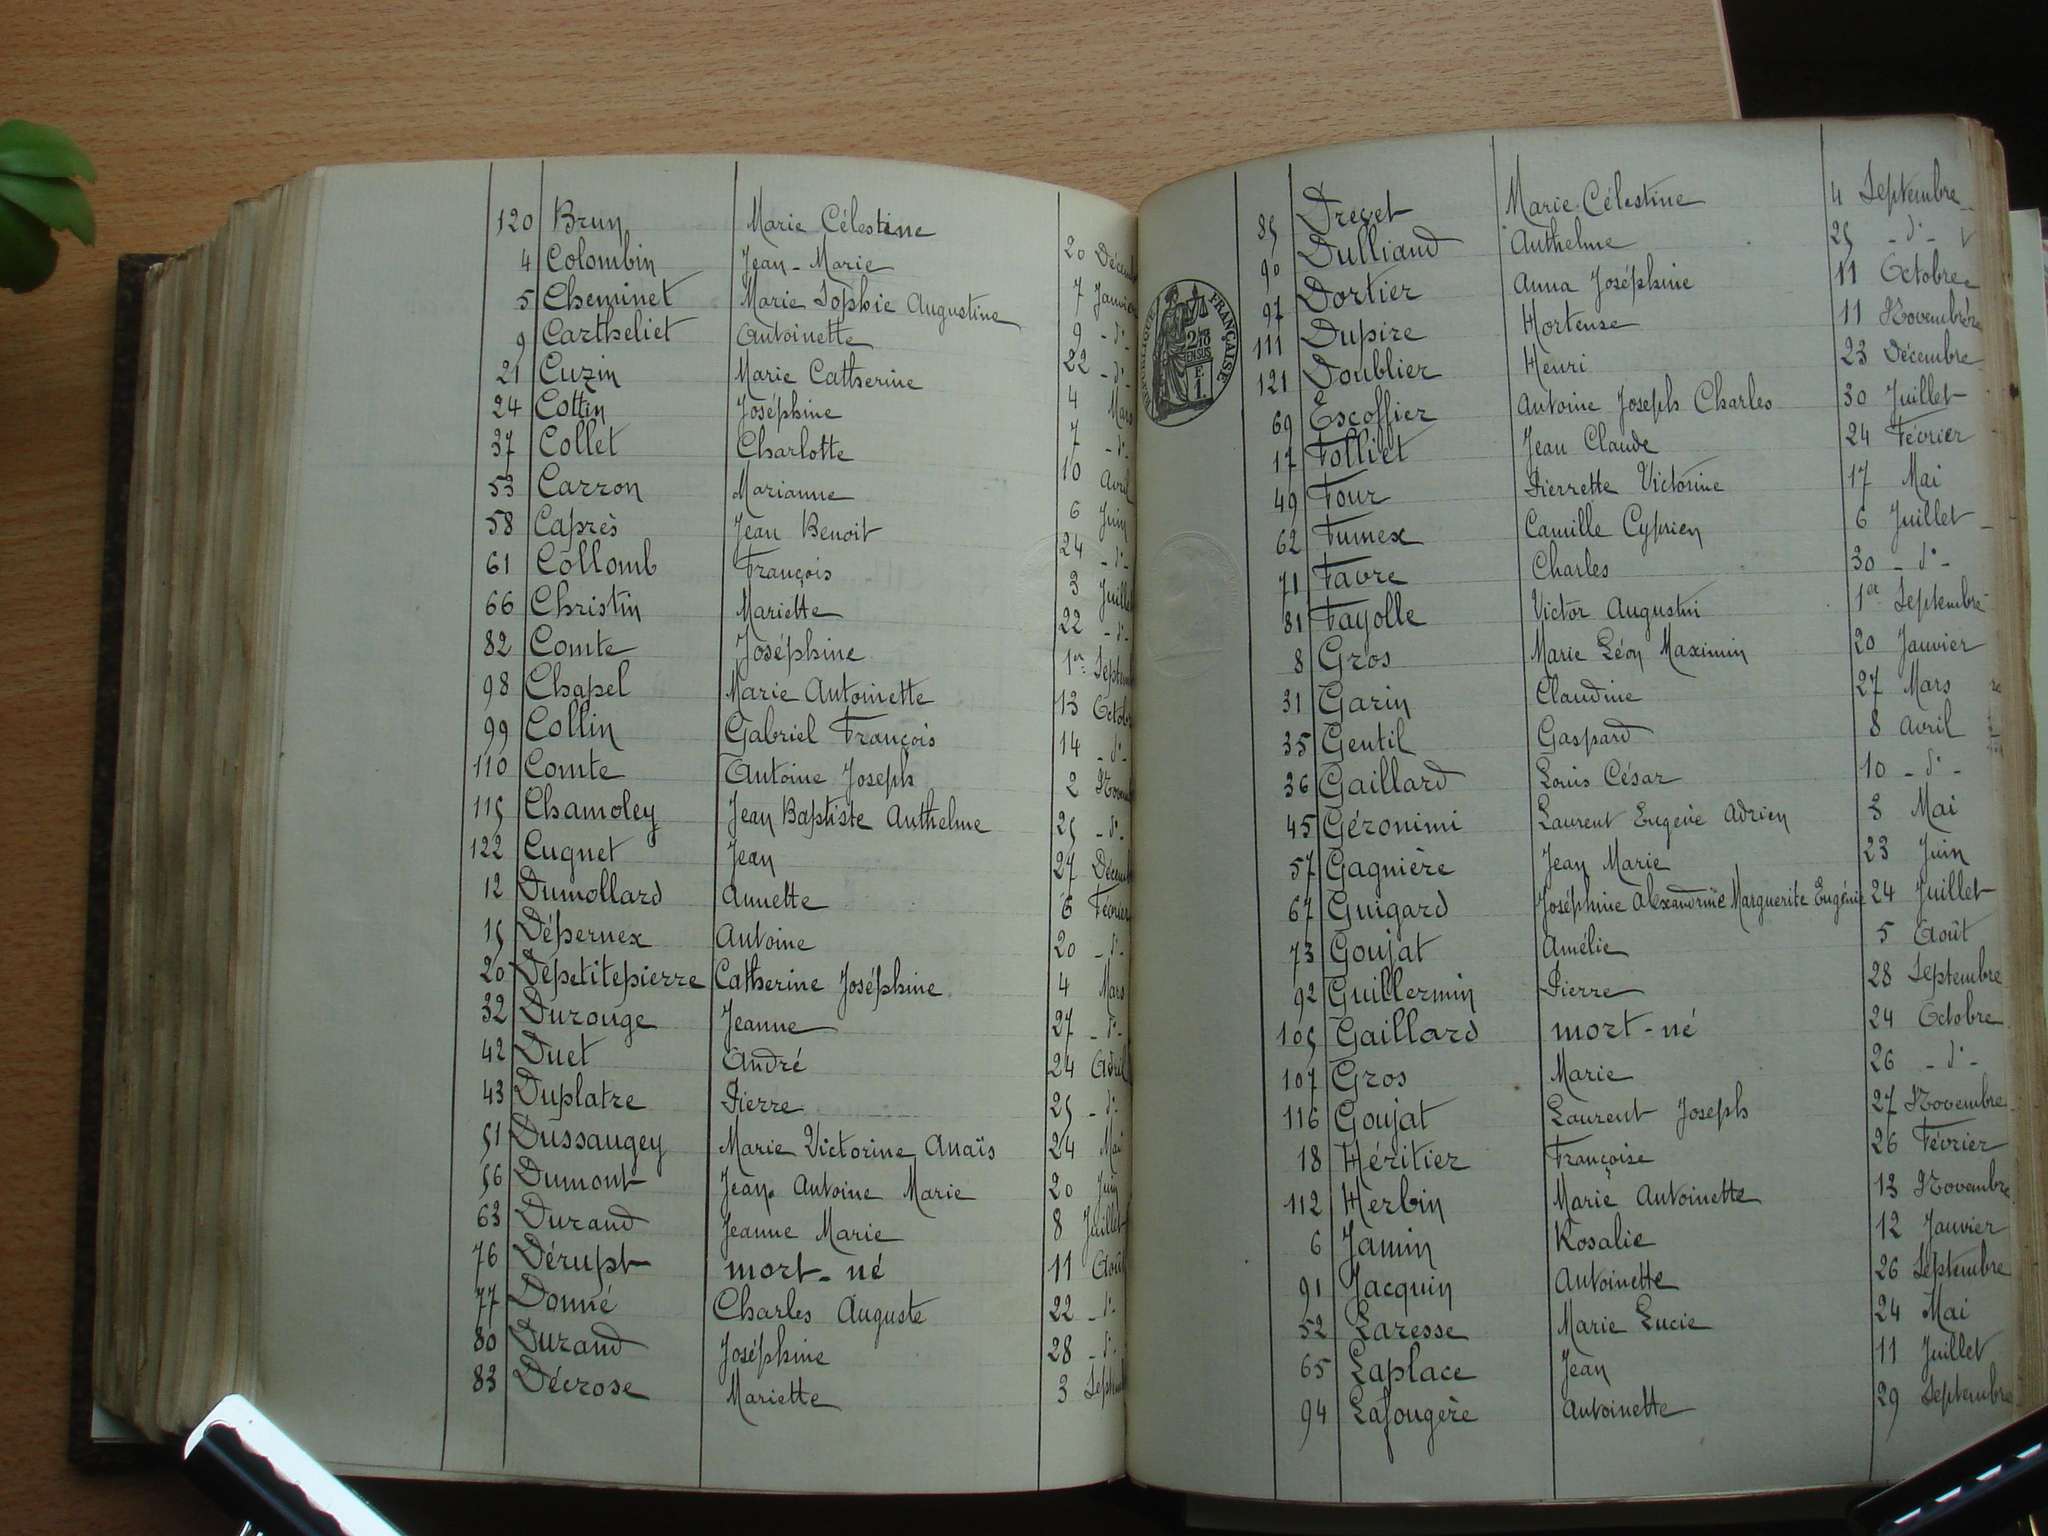 120 Brun Marie Célestine 20 Décem
4 Colombin Jean-Marie 7 Janvier
5 Cheminet Marie Sophie Augustine 9 -d°-
9 Cartheliet Antoinette 22 -d°-
21 Cuzin Marie Catherine 4 Mars
24 Cottin Joséphine 7 -d°-
37 Collet Charlotte 10 Avril
53 Carron Marianne 6 Juin
58 Caprès Jean Benoit 24 -d°-
61 Collomb François 3 Juillet
66 Christin Mariette 22 -d°-
82 Comte Joséphine 1er Septem
98 Chapel Marie Antoinette 13 Octob
99 Collin Gabriel François 14 -d°-
110 Comte Antoine Joseph 2 Novem
115 Chamoley Jean Baptiste Anthelme 25 -d°-
122 Cugnet Jean 27 Décem
12 Dumollard Annette 6 Février
15 Dépernex Antoine 20 -d°-
20 Dépetitepierre Catherine Joséphine 4 Mars
32 Durouge Jeanne 27 -d°-
42 Duet André 24 Avril
43 Duplatre Pierre 25 -d°-
51 Dussaugey Marie Victorine Anaïs 24 Mai
56 Dumont Jean Antoine Marie 20 Juin
63 Durand Jeanne Marie 8 Juillet
76 Dérupt mort-né 11 Août
77 Donné Charles Auguste 22 -d°-
80 Durand Joséphine 28 -d°-
83 Décrose Mariette 3 Septem
RÉPUBLIQUE FRANÇAISE
2/10
EN SUS
E
1.
85 Drevet Marie Célestine 4 Septembre
90 Dulliand Anthelme 25 -d°-
97 Dortier Anna Joséphine 11 Octobre
111 Dupire Hortense 11 Novembre
121 Doublier Henri 23 Décembre
69 Escoffier Antoine Joseph Charles 30 Juillet
17 Folliet Jean Claude 24 Février
49 Four Pierrette Victorine 17 Mai
62 Fumex Camille Cyprien 6 Juillet
71 Favre Charles 30 -d°-
81 Fayolle Victor Augustin 1er Septembre
8 Gros Marie Léon Maximin 20 Janvier
31 Garin Claudine 27 Mars
35 Gentil Gaspard 8 Avril
36 Gaillard Louis César 10 -d°-
45 Géronimi Laurent Eugène Adrien 8 Mai
57 Gagnière Jean Marie 23 Juin
67 Guigard Joséphine Alexandrine Marguerite Eugénie 24 Juillet
73 Goujat Amélie 5 Août
92 Guillermin Pierre 28 Septembre
105 Gaillard mort-né 24 Octobre
107 Gros Marie 26 -d°-
116 Goujat Laurent Joseph 27 Novembre
18 Héritier Françoise 26 Février
112 Herbin Marie Antoinette 13 Novembre
6 Jamin Rosalie 12 Janvier
91 Jacquin Antoinette 26 Septembre
52 Laresse Marie Lucie 24 Mai
65 Laplace Jean 11 Juillet
94 Lafougère Antoinette 29 Septembre